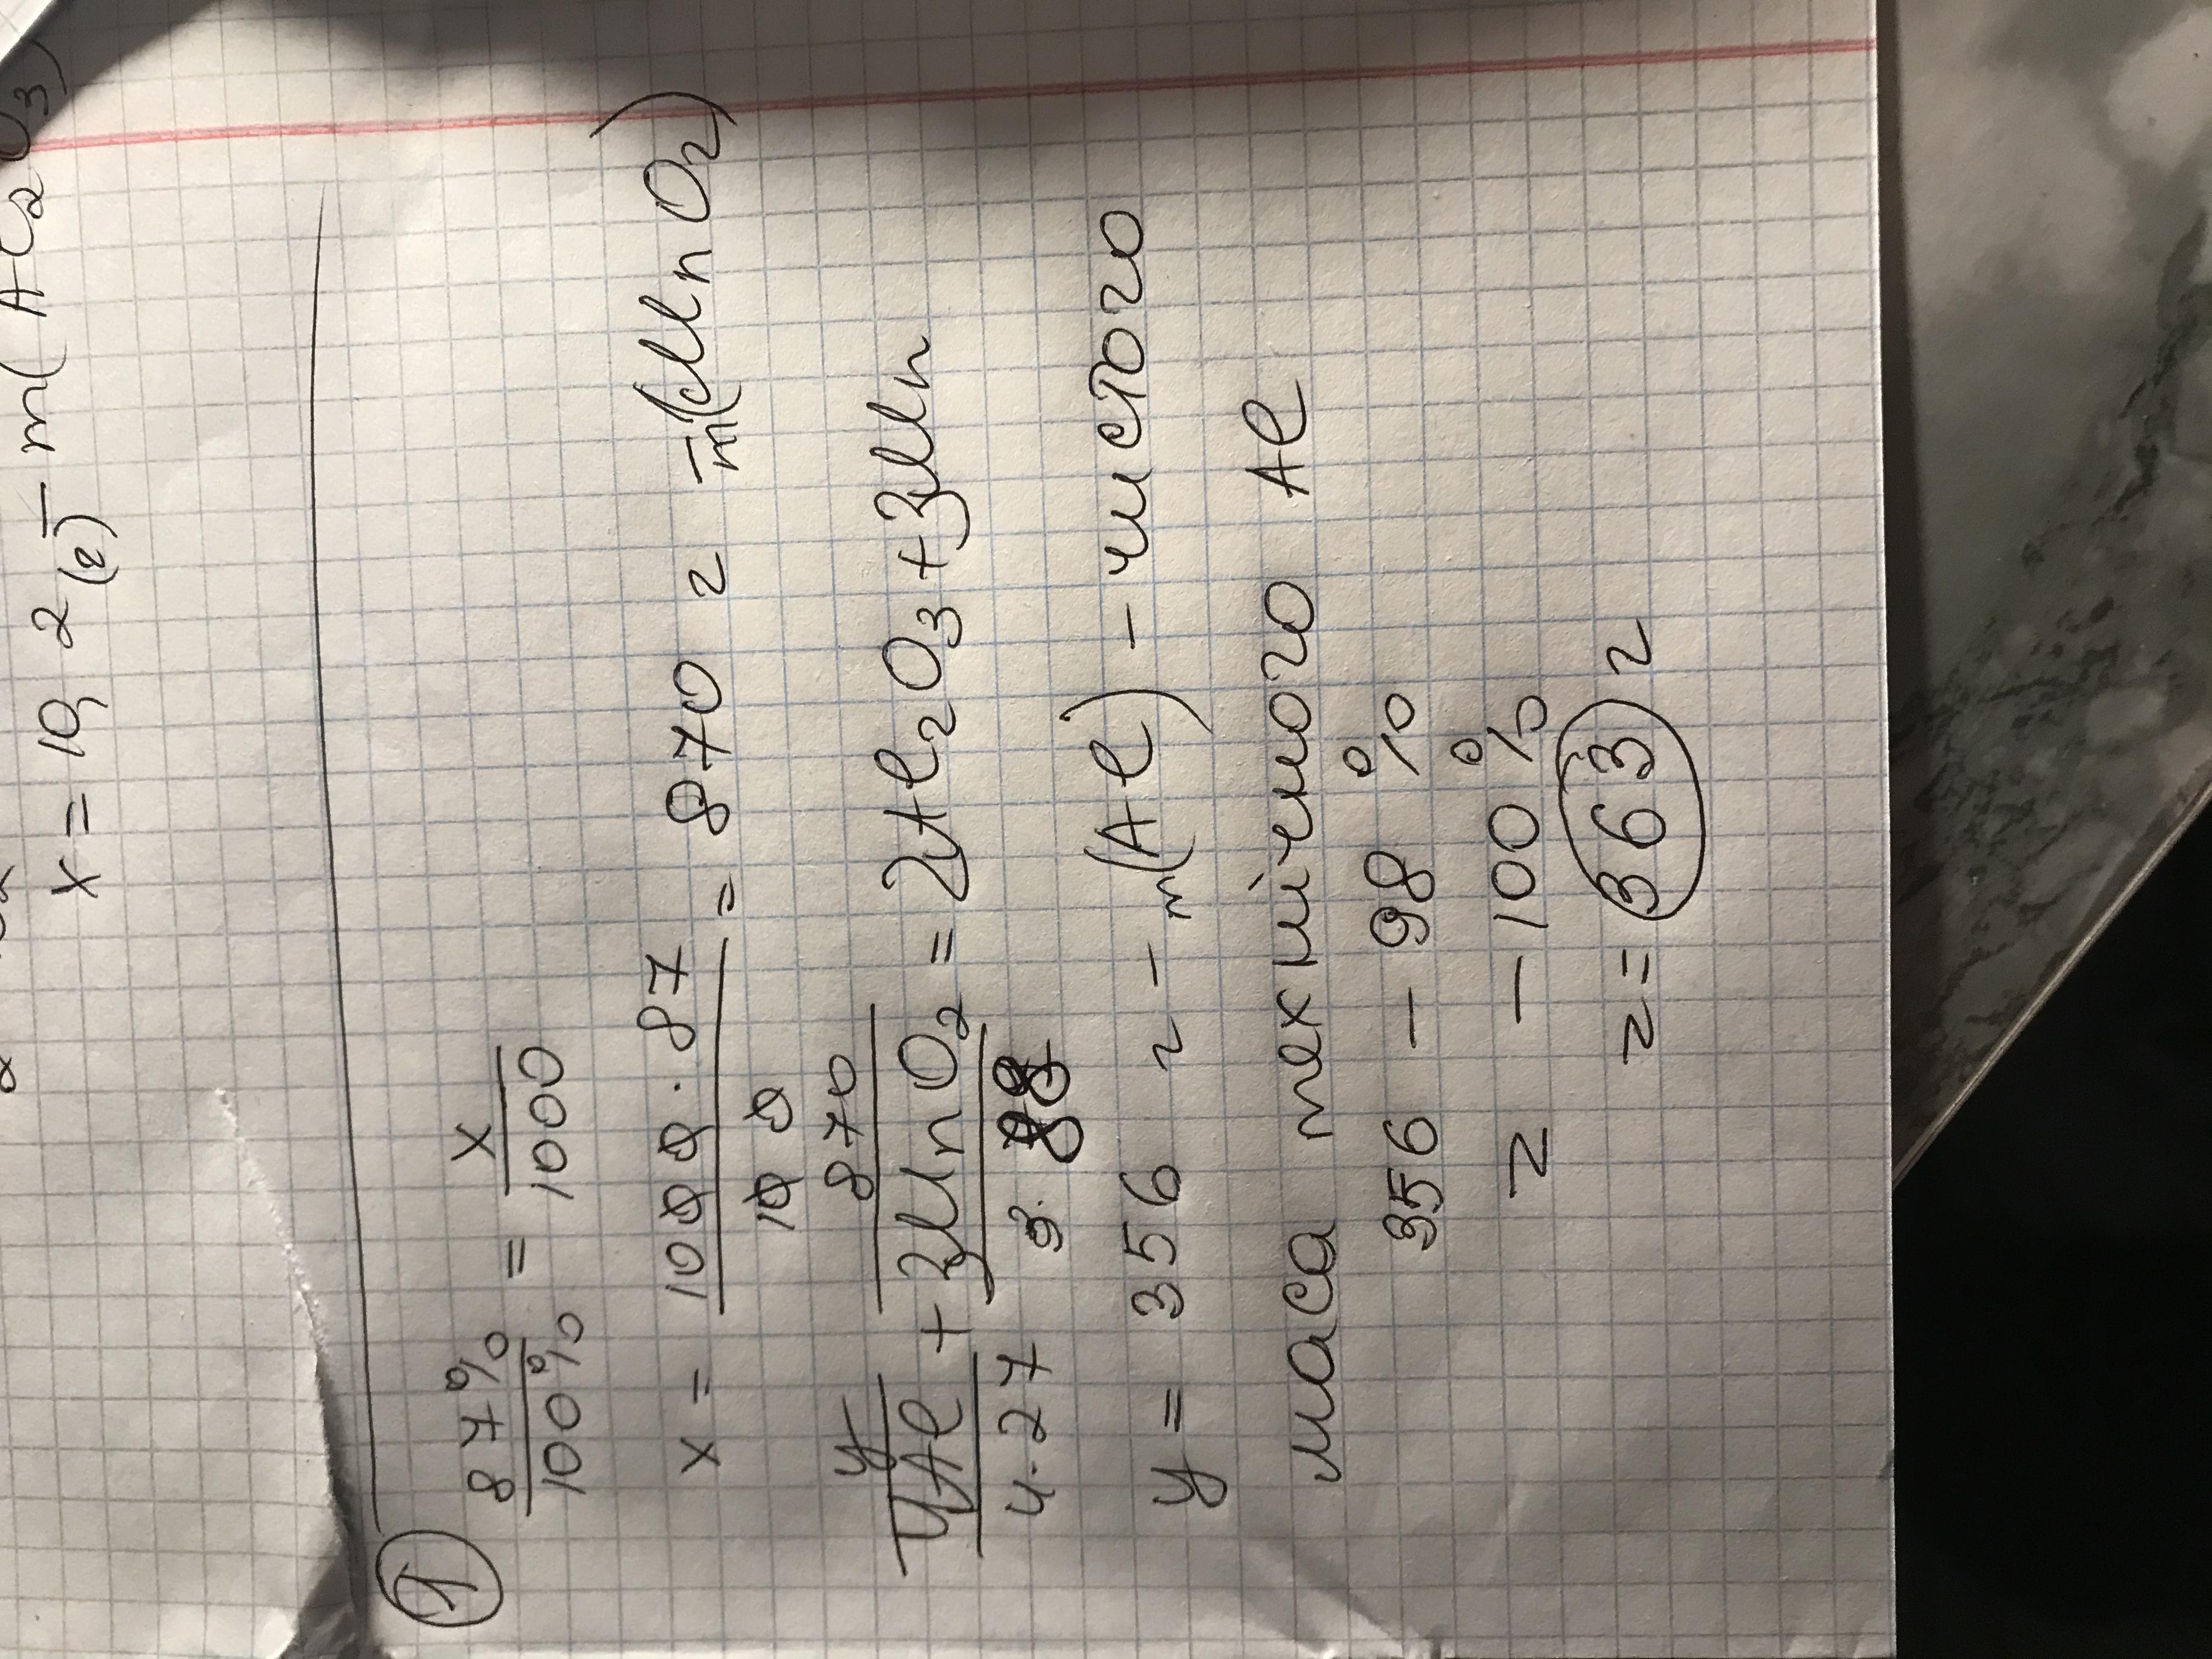 x = 10,2 (г) - m(Al2O3)
1
87% / 100% = x / 1000
x = 1000 · 87 / 100 = 870 г - m(MnO2)
y 870
4Al + 3MnO2 = 2Al2O3 + 3Mn
4·27 3·
y = 356 г - m(Al) - чистого
маса технічного Al
356 - 98 %
z - 100 %
z = 363 г